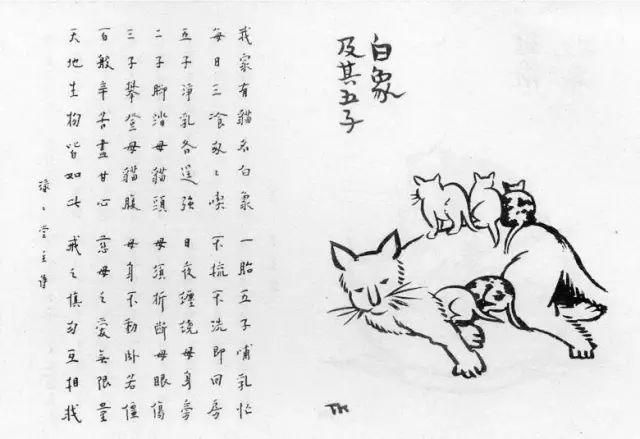 白象
及其五子
TK
我家有貓名白象 一胎五子哺乳忙
每日三飡匆〻喫 不梳不洗即回房
五子爭乳各逞強 日夜纏繞母身旁
二子腳踏母貓頭 母須折斷母眼傷
三子攀登母貓腹 母身不動臥若僵
百般辛苦盡甘心 慈母之愛無限量
天地生物皆如此 戒之慎勿互相戕
緣〻堂主